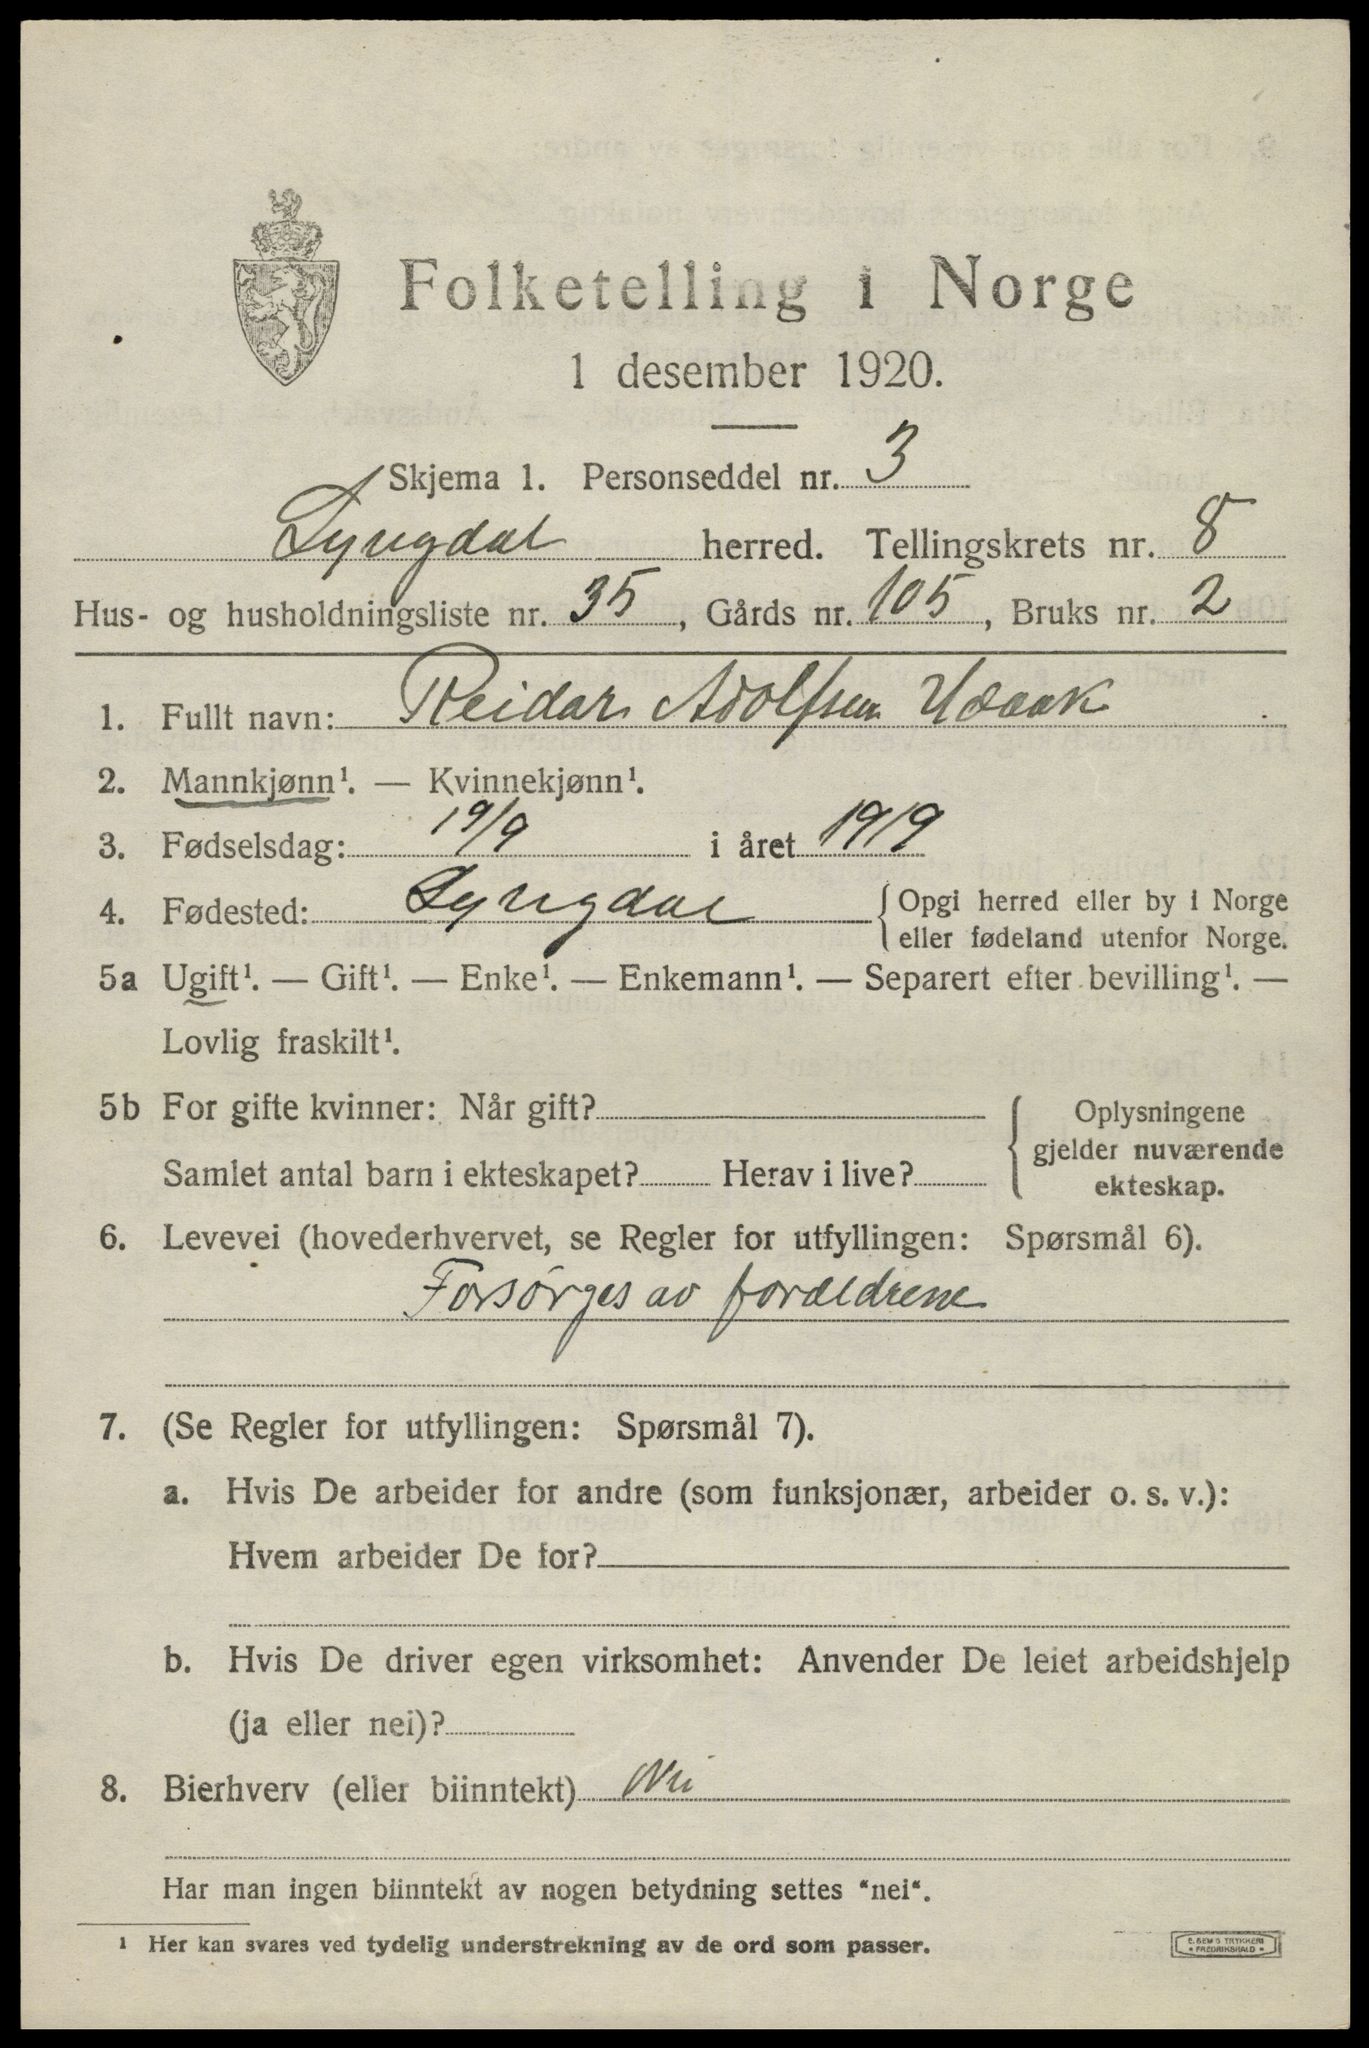 Folketelling i Norge
1 desember 1920.
Skjema 1. Personseddel nr. 3
Lyngdal herred. Tellingskrets nr. 8
Hus- og husholdningsliste nr. 35, Gårds nr. 105, Bruks nr. 2
1. Fullt navn: Reidar Adolfsen
2. Mannkjønn¹. — Kvinnekjønn¹.
3. Fødselsdag: 19/9 i året 1919
4. Fødested: Lyngdal { Opgi herred eller by i Norge
eller fødeland utenfor Norge.
5a Ugift¹. — Gift¹. — Enke¹. — Enkemann¹. — Separert efter bevilling¹. —
Lovlig fraskilt¹.
5b For gifte kvinner: Når gift?
Samlet antal barn i ekteskapet? Herav i live?
{ Oplysningene
gjelder nuværende
ekteskap.
6. Levevei (hovederhvervet, se Regler for utfyllingen: Spørsmål 6).
Forsörges av forældrene
7. (Se Regler for utfyllingen: Spørsmål 7).
a. Hvis De arbeider for andre (som funksjonær, arbeider o. s. v.):
Hvem arbeider De for?
b. Hvis De driver egen virksomhet: Anvender De leiet arbeidshjelp
(ja eller nei)?
8. Bierhverv (eller biinntekt) Nei
Har man ingen biinntekt av nogen betydning settes "nei".
¹ Her kan svares ved tydelig understrekning av de ord som passer.
E. SEM'S TRYKKERI
• FREDRIKSHALD •